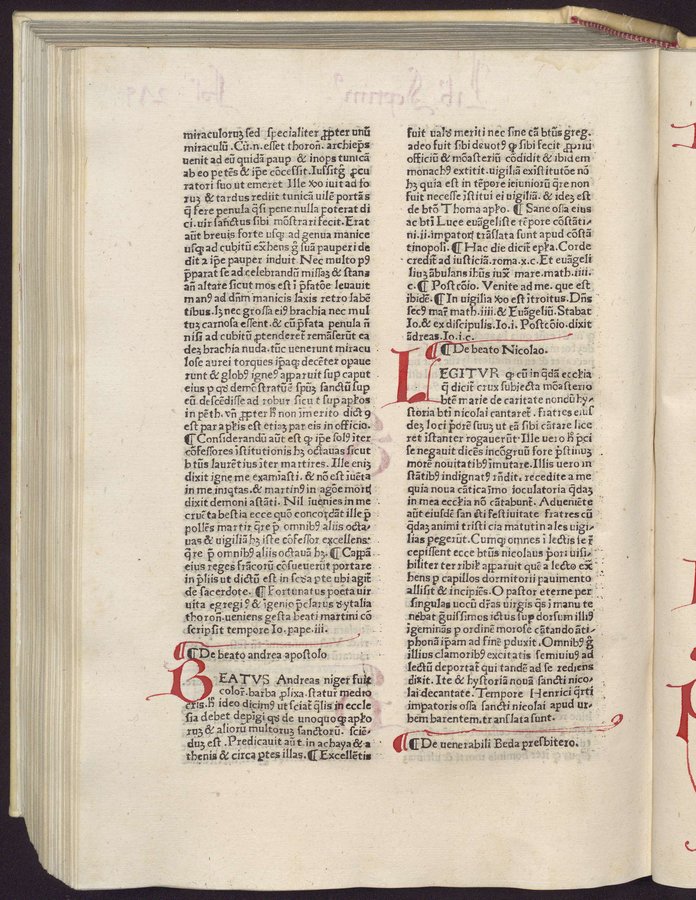 miraculoruꝫ sed specialiter ꝓpter unū
miraculū. Cū.n. esset thoron̄. archiep̄s
uenit ad eū quidā paup̲ & inops tunicā
ab eo petēs & ip̄e cōcessit. Iussitq̄ ꝓcu
ratori suo ut emeret Ille xº iuit ad fo
ruꝫ & tardus rediit tunicā uilē portās
q̄ fere penula q̄si pene nulla poterat di
ci. uir sanctus sibi mōstrari fecit. Erat
aūt breuis forte usq; ad genua manice
usq; ad cubitū
dit a ip̄e pauper induit Nec multo pꝰ
p̄parat se ad celebrandū missaꝫ & stans
an̄ altare sicut mos est ī p̄fatōe leuauit
manꝰ ad dn̄m manicis laxis retro labē
tibus. Iꝫ nec grossa eiꝰ brachia nec mul
tuꝫ carnosa essent. & cū p̄fata penula n̄
nisi ad cubitū ꝓtenderet̄ remāserūt ea
deꝫ brachia nuda. tūc uenerunt miracu
lose aurei torques ip̄aq; decētet̄ opaue
runt & globꝰ igneꝰ apparuit sup caput
eius p qº demōstratū ē sp̄uꝫ sanctū sup
eū descēdisse ad robur sicut sup ap̄los
in pēth. vn̄ ꝓpter ħ non īmerito dictꝰ
est par ap̄lis est etiaꝫ par eis in officio.
¶ Considerandū aūt est qꝫ ip̄e solꝰ iter
cōfessores īstitutionis hꝫ octauas sicut
btūs laurētius īter martires. Ille eniꝫ
dixit igne me examiasti. & nō est īuēta
in me īniqtas. & martinꝰ in agōe mortꝭ
dixit demoni astāti. Nil īuenies in me
cruēta bestia ecce quō concordāt ille p̄
pollēs martir q̄re p̄ omnibꝰ aliis octa
uas & uigiliā hꝫ iste cōfessor excellens.
q̄re p̄ omnibꝰ aliis octauā hꝫ. ¶ Cappā
eius reges frācorū cōsueuerūt portare
in p̄liis ut dictū est in scd̄a pte ubi agit̄
de sacerdote. ¶ Fortunatus poeta uir
uita egregiꝰ & igenio p̄clarus ab ytalia
thoron̄. ueniens gesta beati martini cō
scripsit tempore Io. pape .iii.
¶ De beato andrea apostolo
BEATVS Andreas niger fuit
color̄. barba ꝓlixa. statur̄ medio
cris. ħ ideo dicimꝰ ut sciat̄ q̄lis in eccle
sia debet depigi qꝫ de unoquoqꝫ ap̄lo
ruꝫ & alioru multoruꝫ sanctorū. sciē
duꝫ est. Predicauit aūt. in achaya & a
thenis & circa ptes illas. ¶ Excellētis
fuit ualꝫ meriti nec sine cā btūs greg.
adeo fuit sibi deuotꝰ qꝫ sibi fecit ꝓpriū
officiū & mōasteriū cōdidit & ibidem
monachꝰ extitit. uigiliā exīstitutōe nō
hꝫ quia est in tēpore ieiuniorū q̄re non
fuit necesse īstitui ei uigiliā. & ideꝫ est
de btō Thoma ap̄lo. ¶ Sane ossa eius
ac bti Luce euāgeliste tēpore cōstāti
ni.ii. imp̄ator̄ trāslata sunt apud cōstā
tinopoli. ¶ Hac die dicit̄ ep̄la. Corde
credit̄ ad iusticiā. roma.x.c. Et euāgeli
lium
c. ¶ Postcōio. Venite ad me. que est
ibidē. ¶ In uigilia xº est ītroitus. Dn̄s
secꝰ mar̄ math.iiii. & Euāgeliū. Stabat
Io. & ex discipulis. Io.i. Postcōio. dixit
ādreas. Io.i.c.
¶ De beato Nicolao.
LEGITVR qꝫ cū in q̄dā ecclia
q̄ dicit̄ crux subiecta mōasterio
btē marie de caritate nondū hy
storia bti nicolai cantaret̄. fratres eius
deꝫ loci p̄orē suuꝫ ut eā sibi cātare lice
ret īstanter rogauerūt Ille uero ħ p̄ci
se negauit dicēs incōgruū fore p̄stinuꝫ
morē nouitatibꝰ īmutare. Illis uero in
stātibꝰ indignatꝰ rn̄dit. recedite a me
quia noua cāticaīmo ioculatoria q̄daꝫ
in mea ecclia nō cātabunt̄. Adueniēte
aūt eiusdē sancti festiuitate fratres cū
q̄daꝫ animi tristicia matutinales uigi
lias pegerūt. Cumqꝫ omnes ī lectis se r̄
cepissent ecce btūs nicolaus p̄ori uisi
biliter terribilꝭ apparuit quē a lecto ex
hens p capillos dormitorii pauimento
allisit & incipiēs. O pastor eterne per
singulas uocū dr̄as uirgis qꝫ ī manu te
nebat g̈uissimos ictus sup dorsum illiꝰ
īgemināꝭ p ordinē morose cātando āti
phonā ip̄am ad finē pduxit. Omnibꝰ g̊
illius clamoribꝰ excitatis semiuiuꝰ ad
lectū deportat̄ qui tandē ad se rediens
dixit. Ite & hystoriā nouā sancti nico
lai decantate. Tempore Henrici q̄rti
imp̄atoris ossa sancti nicolai apud ur
bem barentem. translata sunt.
¶ De uenerabili Beda presbitero.